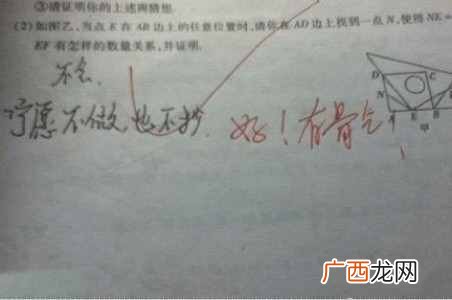 ③请证明你的上述两猜想.
(2)如图乙,当点 E 在 AB 边上的任意位置时,请你在 AD 边上找到一点 N,使得 NE=
EF 有怎样的数量关系,并证明.
不会,
宁愿不做,也不抄. 好!有骨气!
D C
N
A E B
甲
广西龙网